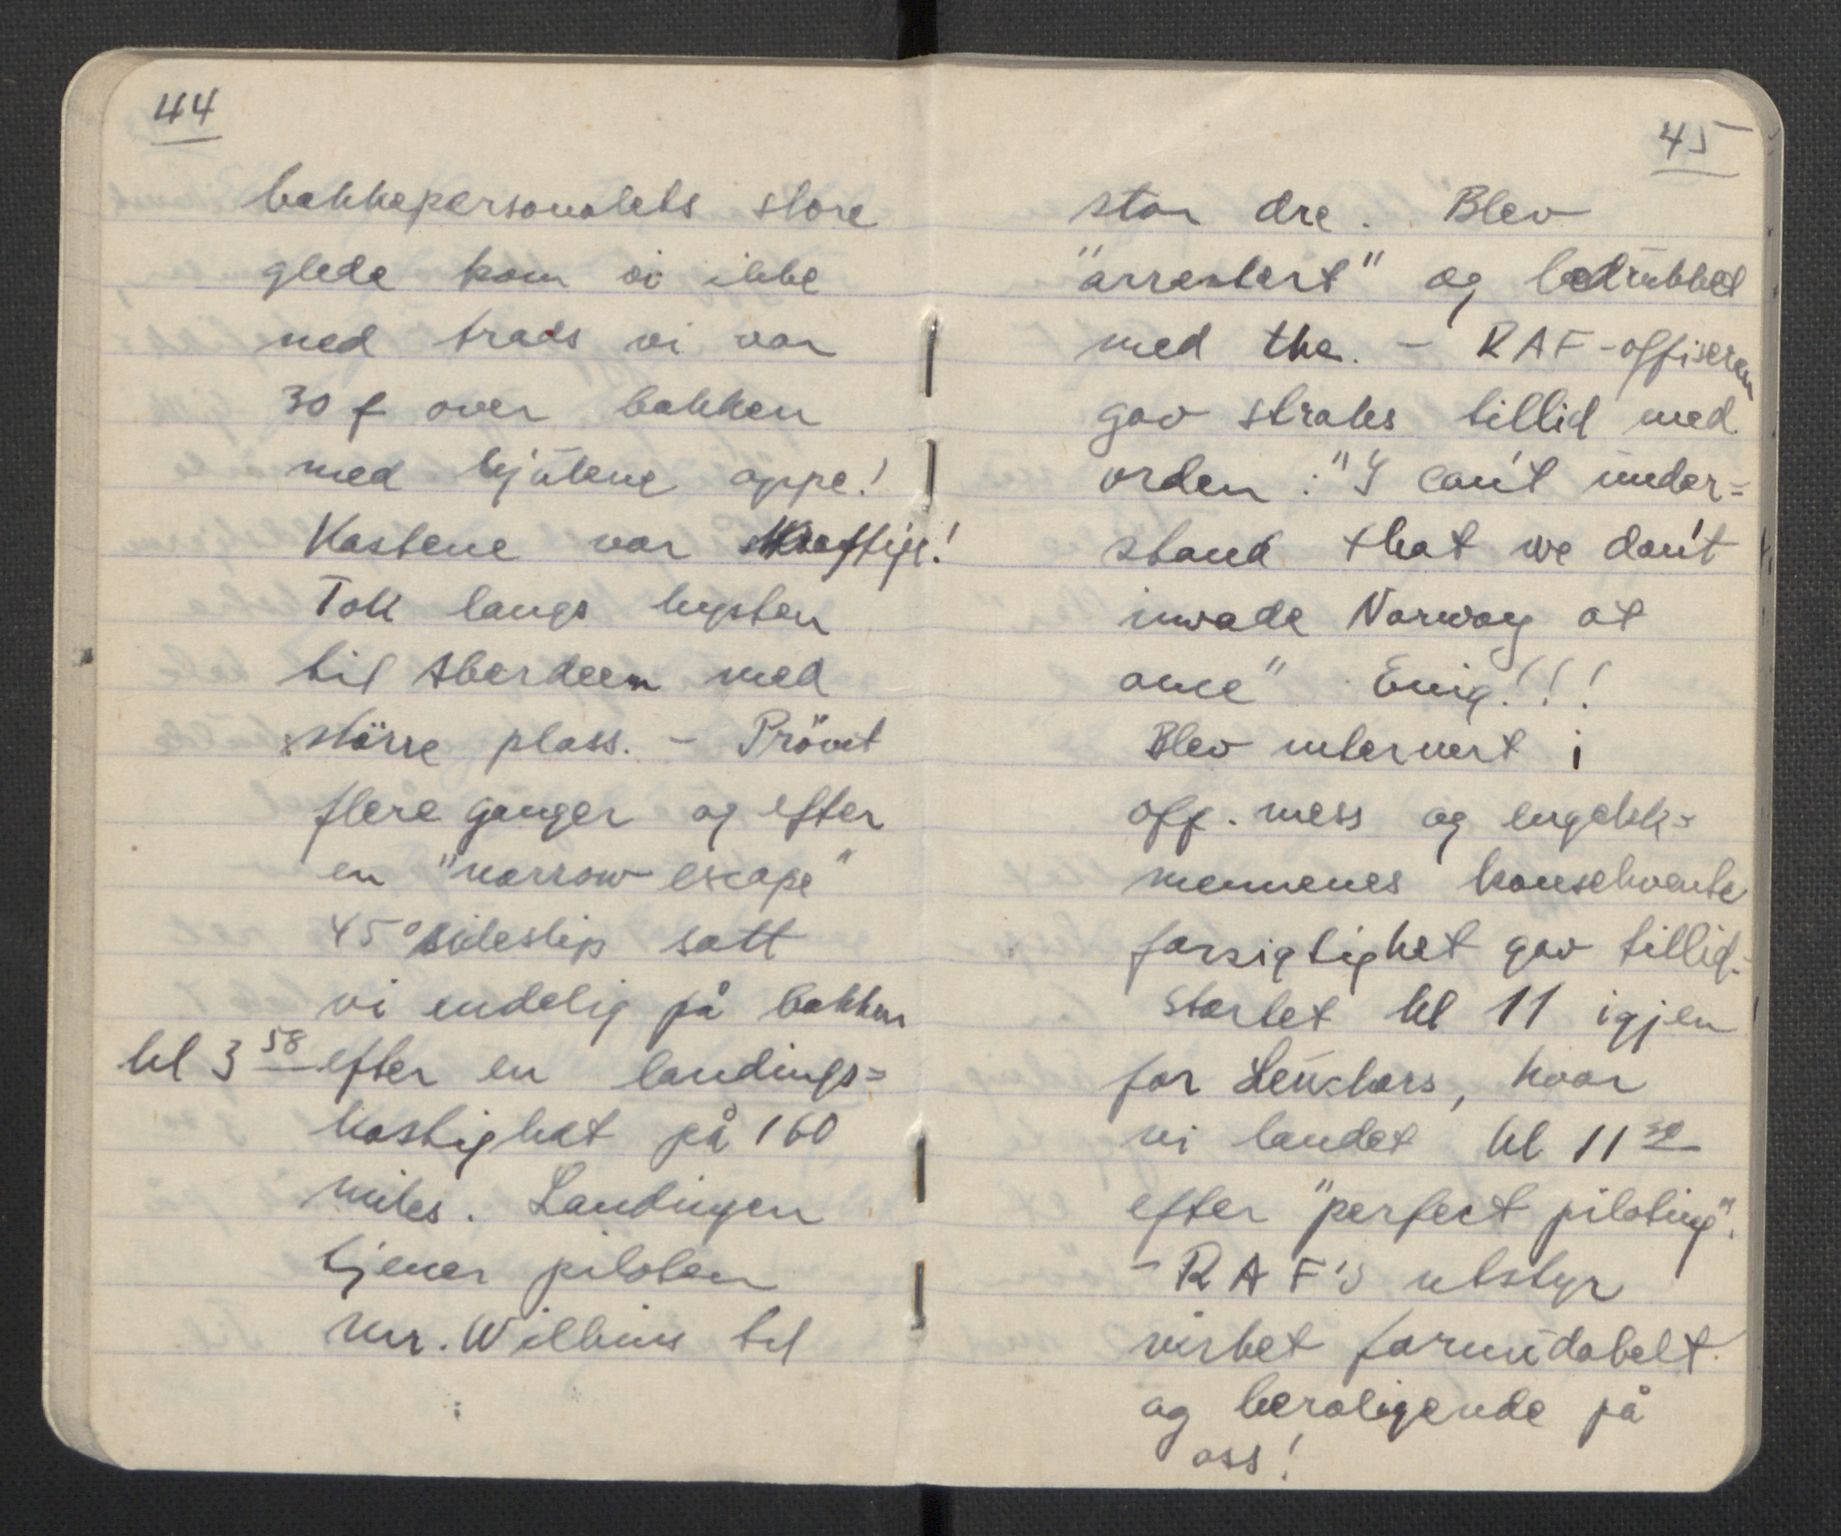 44
bakkepersonalets store
glede kom vi ikke
ned trods vi var
30 f over bakken
med hjulene oppe!
Kastene var kraftige!
Tok langs kysten
til Aberdeen med
större plass. - Prövet
flere ganger og efter
en "narrow escape"
45° sideslip satt
vi endelig på bakken
kl 3 58 efter en landings=
hastighet på 160
miles. Landingen
tjener piloten
mr. Wilkins til
45
stor ære. Blev
"arrestert" og
med the. - RAF-offiseren
gav straks tillid med
orden: "I can't under=
stand that we don't
invade Norway at
once" Enig!!!
Blev internert i
off. mess og engelsk=
mennenes konsekvente
forsigtighet gav tillid.
Startet kl 11 igjen
for Leuchars, hvor
vi landet kl 11
efter "perfect piloting".
- RAF's utstyr
virket formidabelt
og beroligende på
oss!